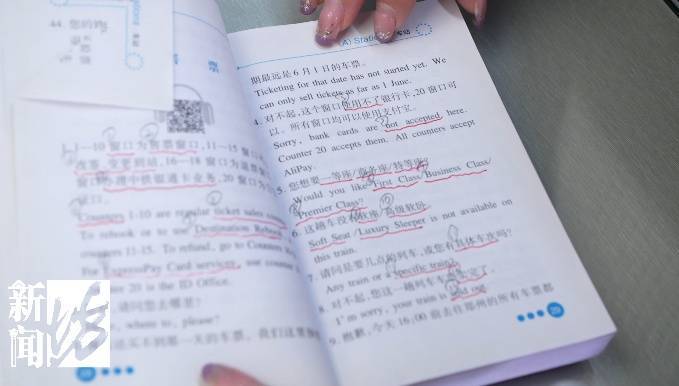 44. 您的
1~10 窗口为售票窗口，11~15 窗口
改签、变更到站，16~18 窗口为退票窗
窗口办理中铁银通卡业务，20 窗口为
证口。
Counters 1-10 are regular ticket sales
To rebook or to use Destination Rebook,
counters 11-15. To refund, go to Counters
For ExpressPay Card services, use counter
20 is the ID Office.
请问您去哪里？
where to, please?
(A) Station 车站
期最远是 6 月 1 日的车票。
Ticketing for that date has not started yet. We
can only sell tickets as far as 1 June.
4. 对不起，这个窗口使用不了银行卡，20 窗口可
以。所有窗口均可以使用支付宝。
Sorry, bank cards are not accepted here.
Counter 20 accepts them. All counters accept
AliPay.
5. 您想要一等座/商务座/特等座？
Would you like First Class/Business Class/
Premier Class?
6. 这趟车没有软座/高级软卧。
Soft Seat/Luxury Sleeper is not available on
this train.
7. 请问是要几点的列车，或您有具体车次吗？
Any train or a specific train?
8. 对不起，您这一趟列车车票售完了。
I'm sorry, your train is sold out.
9. 抱歉，今天 16:00 前去往郑州的所有车票都
29
新闻
坊